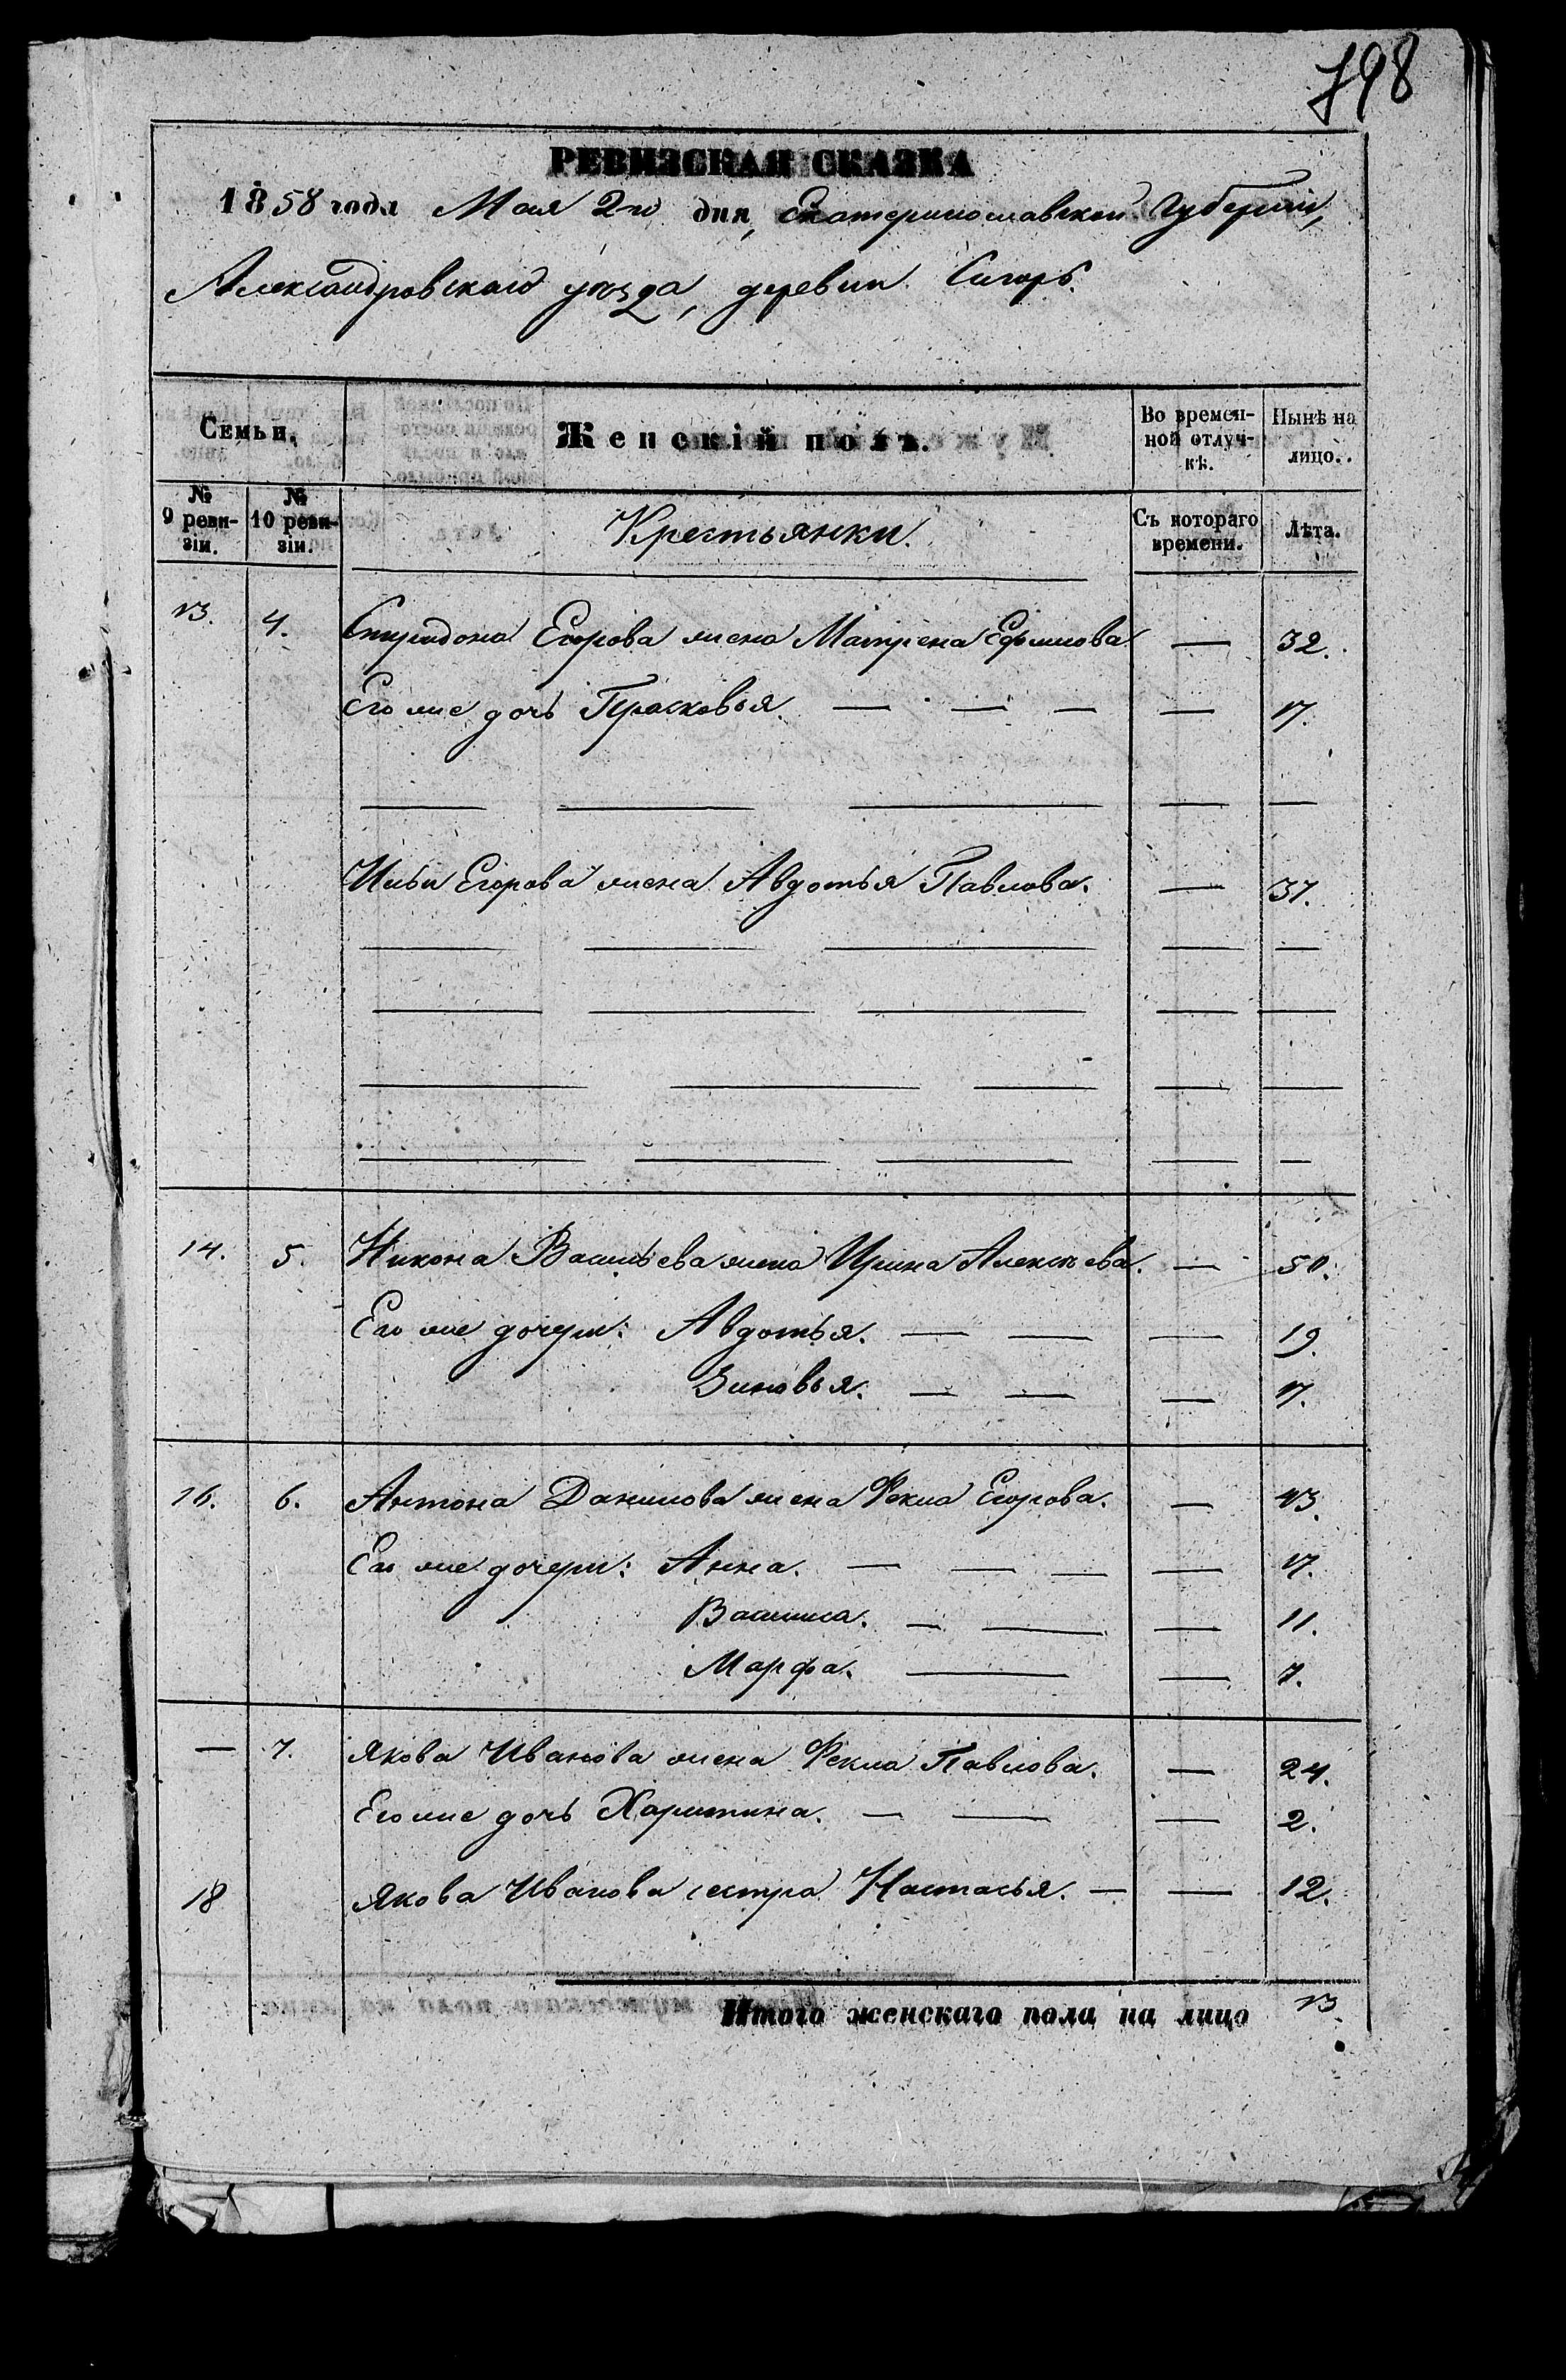 798
РЕВИЗСКАЯ СКАЗКА
1858 года Мая 2го дня, Екатеринославской Губернии,
Александровскаго уѣзда, деревни
Семьи. Женскій полъ. Во времен-ной отлуч-кѣ. Нынѣ на лицо.
№ 9 реви-зіи. № 10 реви-зіи. Крестьянки. Съ котораго времени. Лѣта.
13. 4. Спиридона Егорова жена Матрена Ефимова — 32.
Его же дочь Прасковья. — — — — 17.
— — — — —
Ильи Егорова жена Авдотья Павлова. — 37.
— — — — —
— — — — —
— — — — —
— — — — —
14. 5. Никона Васильева жена Ирина Алексѣева. — 50.
Его же дочери: Авдотья. — — — 19.
Зиновья. — — — 17.
16. 6. Антона Данилова жена Фекла Егорова. — 43.
Его же дочери: Анна. — — — — 17.
Василиса. — — — 11.
Марфа. — — 7.
— 7. Якова Иванова жена Фекла Павлова. — 24.
Его же дочь Харитина. — — — 2.
18 Якова Иванова сестра Настасья. — — 12.
Итого женскаго пола на лицо 13